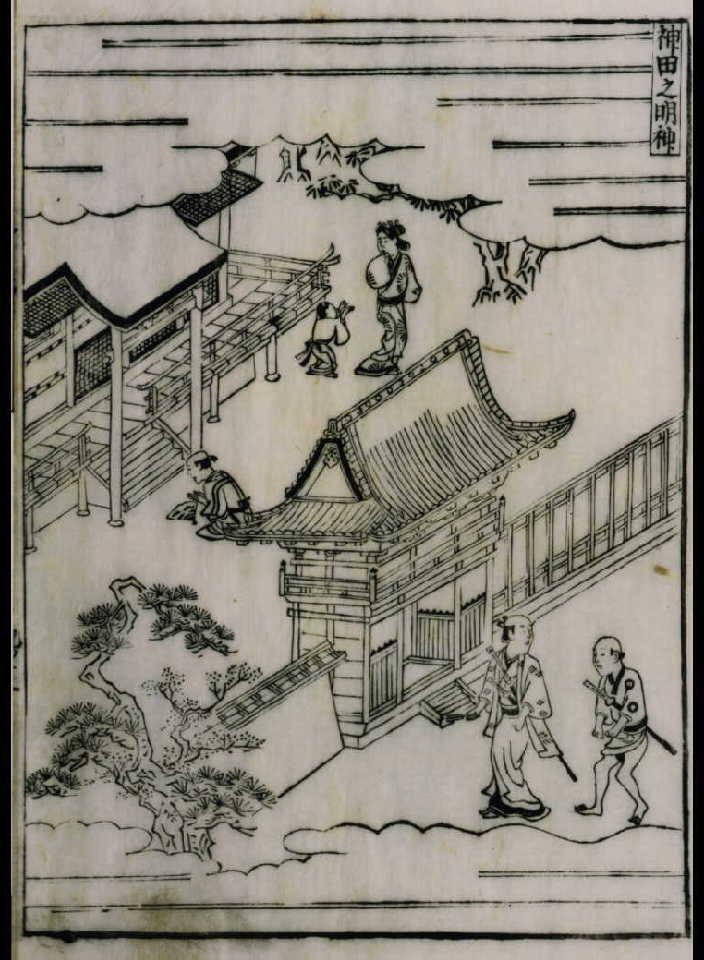 神田之明神